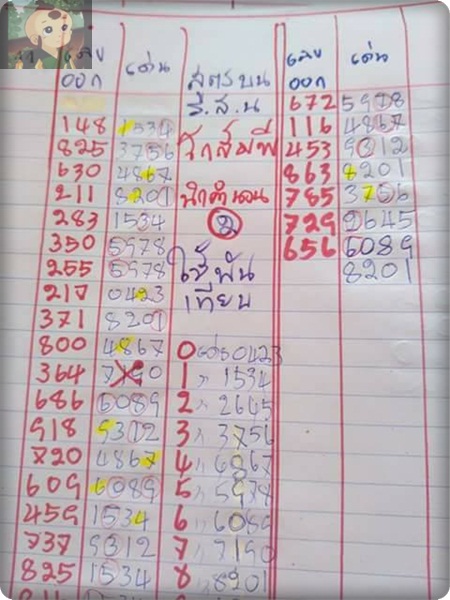 เลข ออก เด่น
148 1534
825 3756
630 4867
211 8201
283 1534
350 5978
255 5978
217 0423
371 8201
800 4867
364 7190
686 6089
918 9312
720 4867
609 6089
459 1534
737 9312
825 1534
สูตรบน
นำคำนวน
ใส่พัน
เทียบ
0 0423
1 " 1534
2 " 2645
3 " 3756
4 " 4867
5 " 5978
6 " 6089
7 " 7190
8 " 8201
เลข ออก เด่น
672 5978
116 4867
453 9312
863 8201
785 3756
729 2645
656 6089
8201